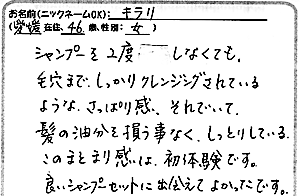 お名前(ニックネームOK): キラリ
(愛媛 在住、46 歳、性別: 女 )
シャンプーを2度 しなくても、
毛穴まで、しっかりクレンジングされている
ような、さっぱり感、それでいて、
髪の油分を損う事なく、しっとりしている。
このまとまり感は、初体験です。
良いシャンプーセットに出会えてよかったです。